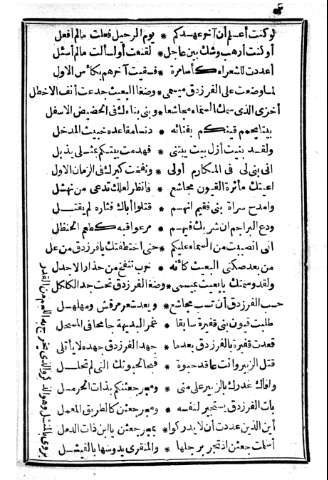 لو كنت أعلم أن آخر عهدكم * يوم الرحيل فعلت ما لم أفعل
أو كنت أرهب وشك بين عاجل * لقنعت أو لسألت ما لم أسئل
أعددت للشعراء كأسا مرة * فسقيت آخرهم بكأس الاول
لما وضعت على الفرزدق ميسمى * وضغا البعيث جدعت أنف الاخطل
أخزى الذى سمك السماء مجاشعا * وبنى بناءك فى الحضيض الاسفل
بيتا يحمم قينكم بفنائه * دنسا مقاعده خبيث المدخل
ولقد بنيت أزل بيت يبتنى * فهدمت بيتكم بمثلى يذبل
انى بنى لى فى المكارم أولى * ونفخت كيرك فى الزمان الاول
اعيتك مأثرة القيون مجاشع * فانظر لعلك تدعى من نهشل
وامدح سراة بنى فقيم انهم * قتلوا أباك وثأره لم يقتل
ودع البراجم ان شربك فيهم * مر عواقبه كطعم الحنظل
انى انصببت من السماء عليكم * حتى اختطفتك يا فرزدق من عل
من بعد صكتى البعيث كأنه * خرب تنفج من حذار الاجدل
ولقد وسمتك يا بعيث بميسمى * وضغا الفرزدق تحت حد الكلكل
حسب الفرزدق أن تسب مجاشع * ويعد شعر مرقش ومهلهل
طلبت قيون بنى قفيرة سابقا * غمر البديهة جامحا فى المسحل
قعدت قفيرة بالفرزدق بعدما * جهد الفرزدق جهده لا يأتلى
قتل الزبير وأنت عاقد حبوة * قبحا لحبوتك التى لم تحلل
وافاك غدرك بالزبير على منى * ومجر جعثنكم بذات الحرمل
بات الفرزدق يستجير لنفسه * وعجان جعثن كالطريق المعمل
أين الذين عددت أن لا يدركوا * بمجر جعثن يا ابن ذات الدمل
أسلمت جعثن اذ تجر برجلها * والمنقرى يدوسها بالفيشل